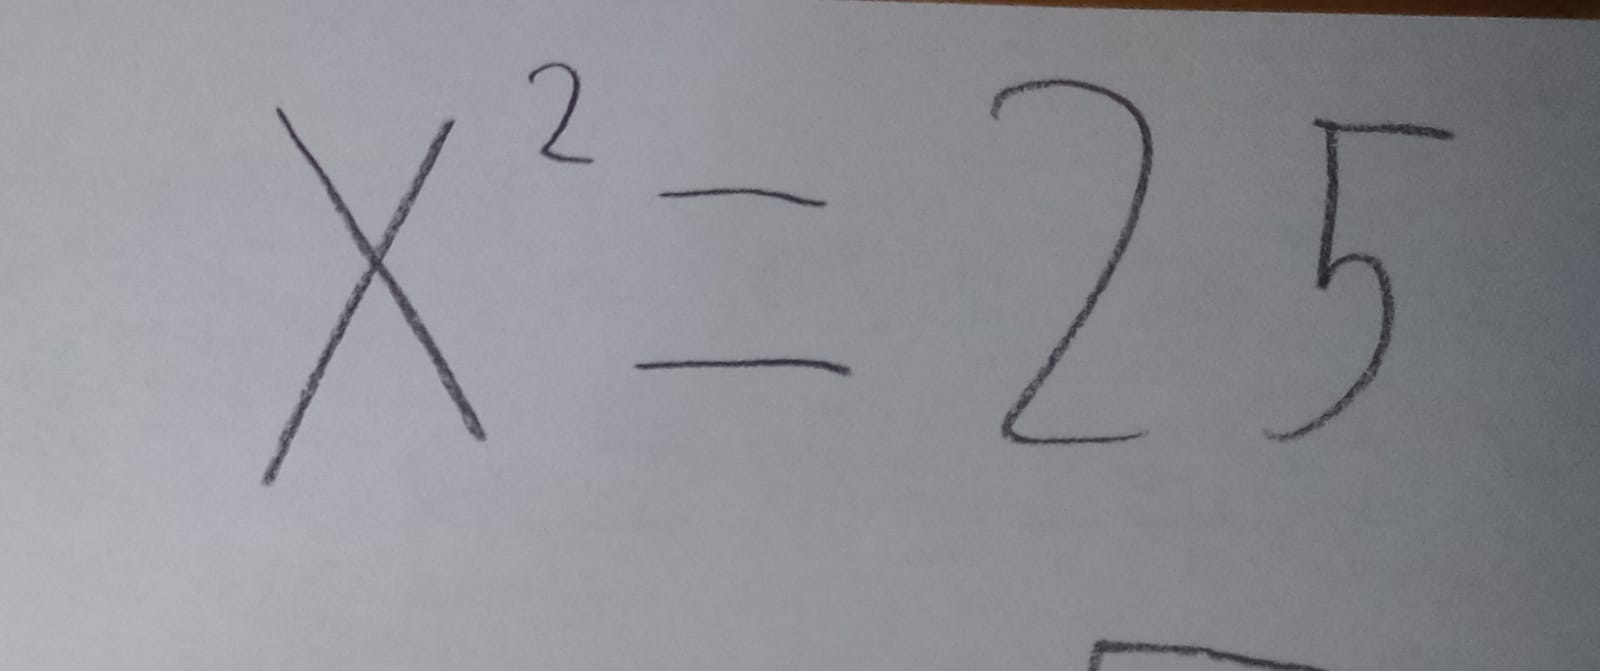 X² = 25